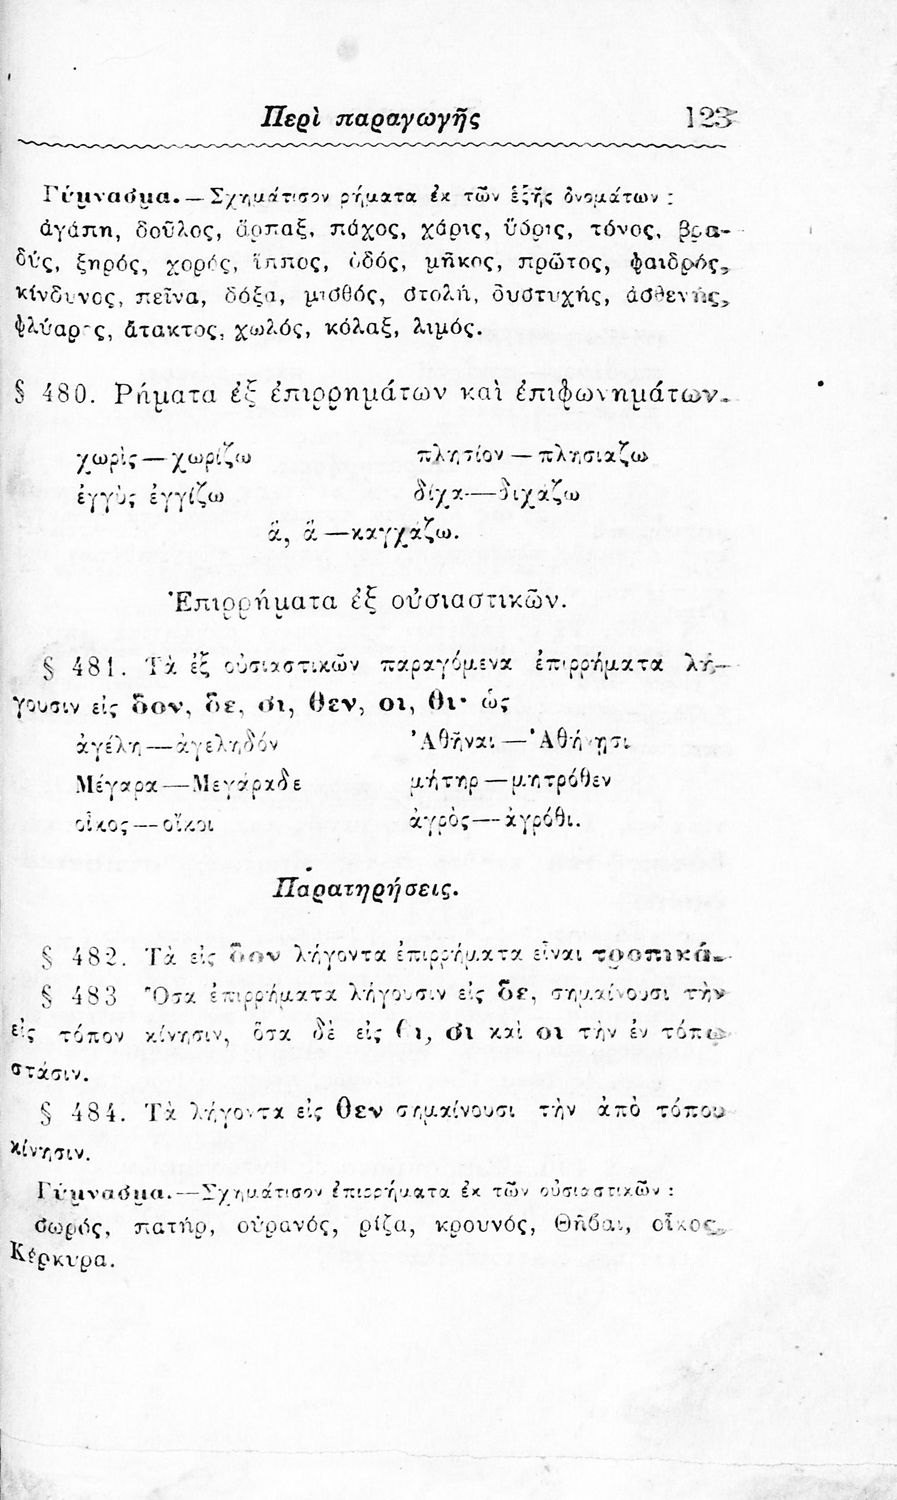 Περὶ παραγωγῆς 123
Γύμνασμα.—Σχημάτισον ρήματα ἐκ τῶν ἑξῆς ὀνομάτων :
ἀγάπη, δοῦλος, ἅρπαξ, πάχος, χάρις, ὕβρις, τόνος, βρα-
δύς, ξηρός, χορός, ἵππος, ὁδός, μῆκος, πρῶτος, φαιδρός,
κίνδυνος, πεῖνα, δόξα, μισθός, στολή, δυστυχής, ἀσθενής,
φλύαρος, ἄτακτος, χωλός, κόλαξ, λιμός.
§ 480. Ρήματα ἐξ ἐπιρρημάτων καὶ ἐπιφωνημάτων.
χωρὶς — χωρίζω πλησίον — πλησιάζω
ἐγγὺς ἐγγίζω δίχα—διχάζω
ἅ, ἅ —καγχάζω.
Ἐπιρρήματα ἐξ οὐσιαστικῶν.
§ 481. Τὰ ἐξ οὐσιαστικῶν παραγόμενα ἐπιρρήματα λή-
γουσιν εἰς δον, δε, σι, θεν, οι, θι· ὡς
ἀγέλη—ἀγεληδόν Ἀθῆναι —Ἀθήνησι
Μέγαρα—Μεγάραδε μήτηρ—μητρόθεν
οἶκος—οἴκοι ἀγρὸς—ἀγρόθι.
Παρατηρήσεις.
§ 482. Τὰ εἰς δον λήγοντα ἐπιρρήματα εἶναι τροπικά.
§ 483 Ὅσα ἐπιρρήματα λήγουσιν εἰς δε, σημαίνουσι τὴν
εἰς τόπον κίνησιν, ὅσα δὲ εἰς θι, σι καὶ οι τὴν ἐν τόπῳ
στάσιν.
§ 484. Τὰ λήγοντα εἰς θεν σημαίνουσι τὴν ἀπὸ τόπου
κίνησιν.
Γύμνασμα.—Σχημάτισον ἐπιρρήματα ἐκ τῶν οὐσιαστικῶν :
σωρός, πατήρ, οὐρανός, ρίζα, κρουνός, Θῆβαι, οἶκος,
Κέρκυρα.